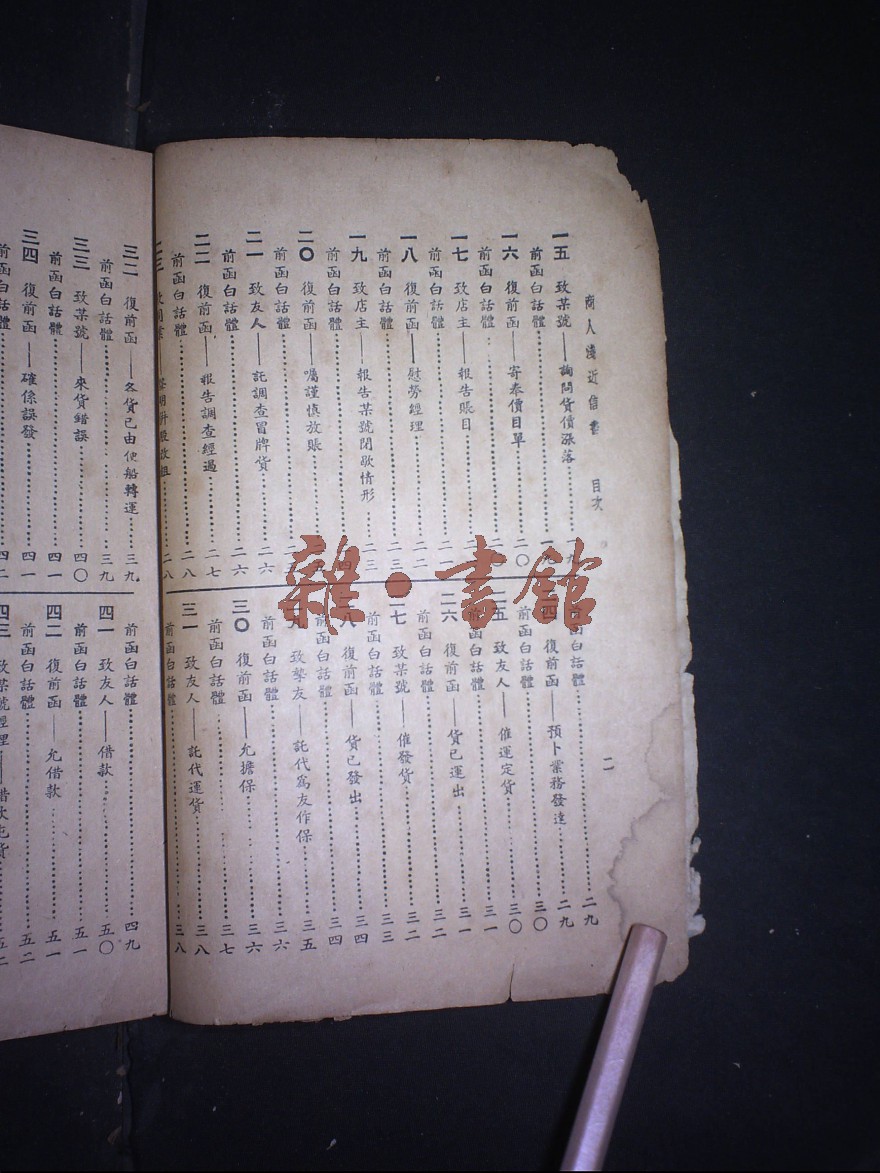 商人淺近信書　目次　二
一五　致某號——詢問貨價漲落……一九
前函白話體……一九
一六　復前函——寄奉價目單……二〇
前函白話體
一七　致店主——報告賬目
前函白話體
一八　復前函——慰勞經理……二二
前函白話體……二三
一九　致店主——報告某號閉歇情形……二三
前函白話體
二〇　復前函——囑謹慎放賬
前函白話體
二一　致友人——託調查冒牌貨……二六
前函白話體……二六
二二　復前函——報告調查經過……二七
前函白話體……二八
二三　……二八
前函白話體……二九
二四　復前函——預卜業務發達……二九
前函白話體……三〇
二五　致友人——催運定貨……三〇
前函白話體……三一
二六　復前函——貨已運出……三一
前函白話體……三二
二七　致某號——催發貨……三二
前函白話體……三三
二八　復前函——貨已發出……三四
前函白話體……三四
二九　致摯友——託代爲友作保……三五
前函白話體……三六
三〇　復前函——允擔保……三六
前函白話體……三七
三一　致友人——託代運貨……三八
前函白話體……三八
三二　復前函——各貨已由便船轉運……三九
前函白話體……三九
三三　致某號——來貨錯誤……四〇
前函白話體……四一
三四　復前函——確係誤發……四一
前函白話體……四二
前函白話體……四九
四一　致友人——借款……五〇
前函白話體……五一
四二　復前函——允借款……五一
前函白話體……五二
四三　致某號經理——借款屯貨……五二
雜·書館